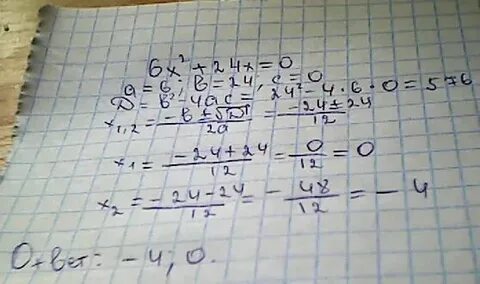 6x² + 24x = 0
a = 6, b = 24, c = 0
D = b² - 4ac = 24² - 4 · 6 · 0 = 576
x₁,₂ = (-b ± √D) / 2a = (-24 ± 24) / 12
x₁ = (-24 + 24) / 12 = 0 / 12 = 0
x₂ = (-24 - 24) / 12 = - 48 / 12 = - 4
Ответ: -4; 0.